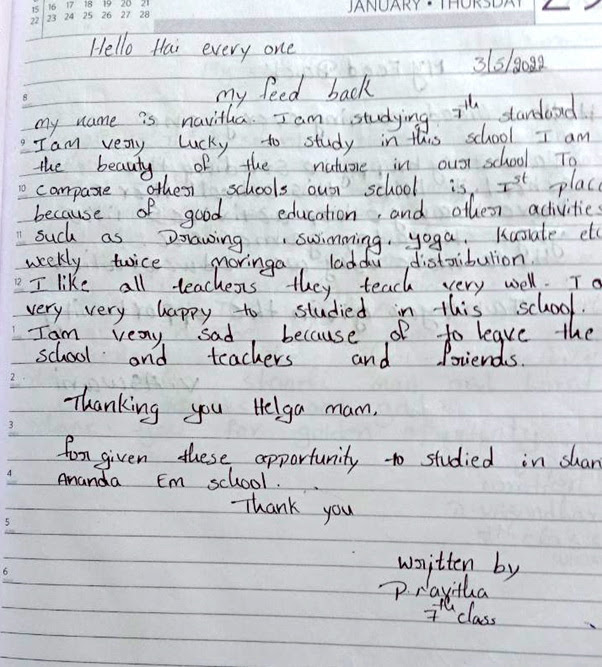 15 16 17 18 19 20 21
22 23 24 25 26 27 28
JANUARY • THURSDAY
Hello Hai every one
3/5/2022
8
my feed back
my name is navitha. I am studying 7th standard.
9 I am very lucky to study in this school I am
the beauty of the nature in our school To
10 compare other schools our school is Ist plac
because of good education, and other activities
11 such as Drawing, swimming, yoga, Karate etc
weekly twice moringa laddu distribution
12 I like all teachers they teach very well. I a
very very happy to studied in this school.
1 I am very sad because of to leave the
school and teachers and friends.
2
Thanking you Helga mam,
3
for given these opportunity to studied in shan
4 Ananda Em school.
Thank you
5
written by
6
P. Navitha
7th class